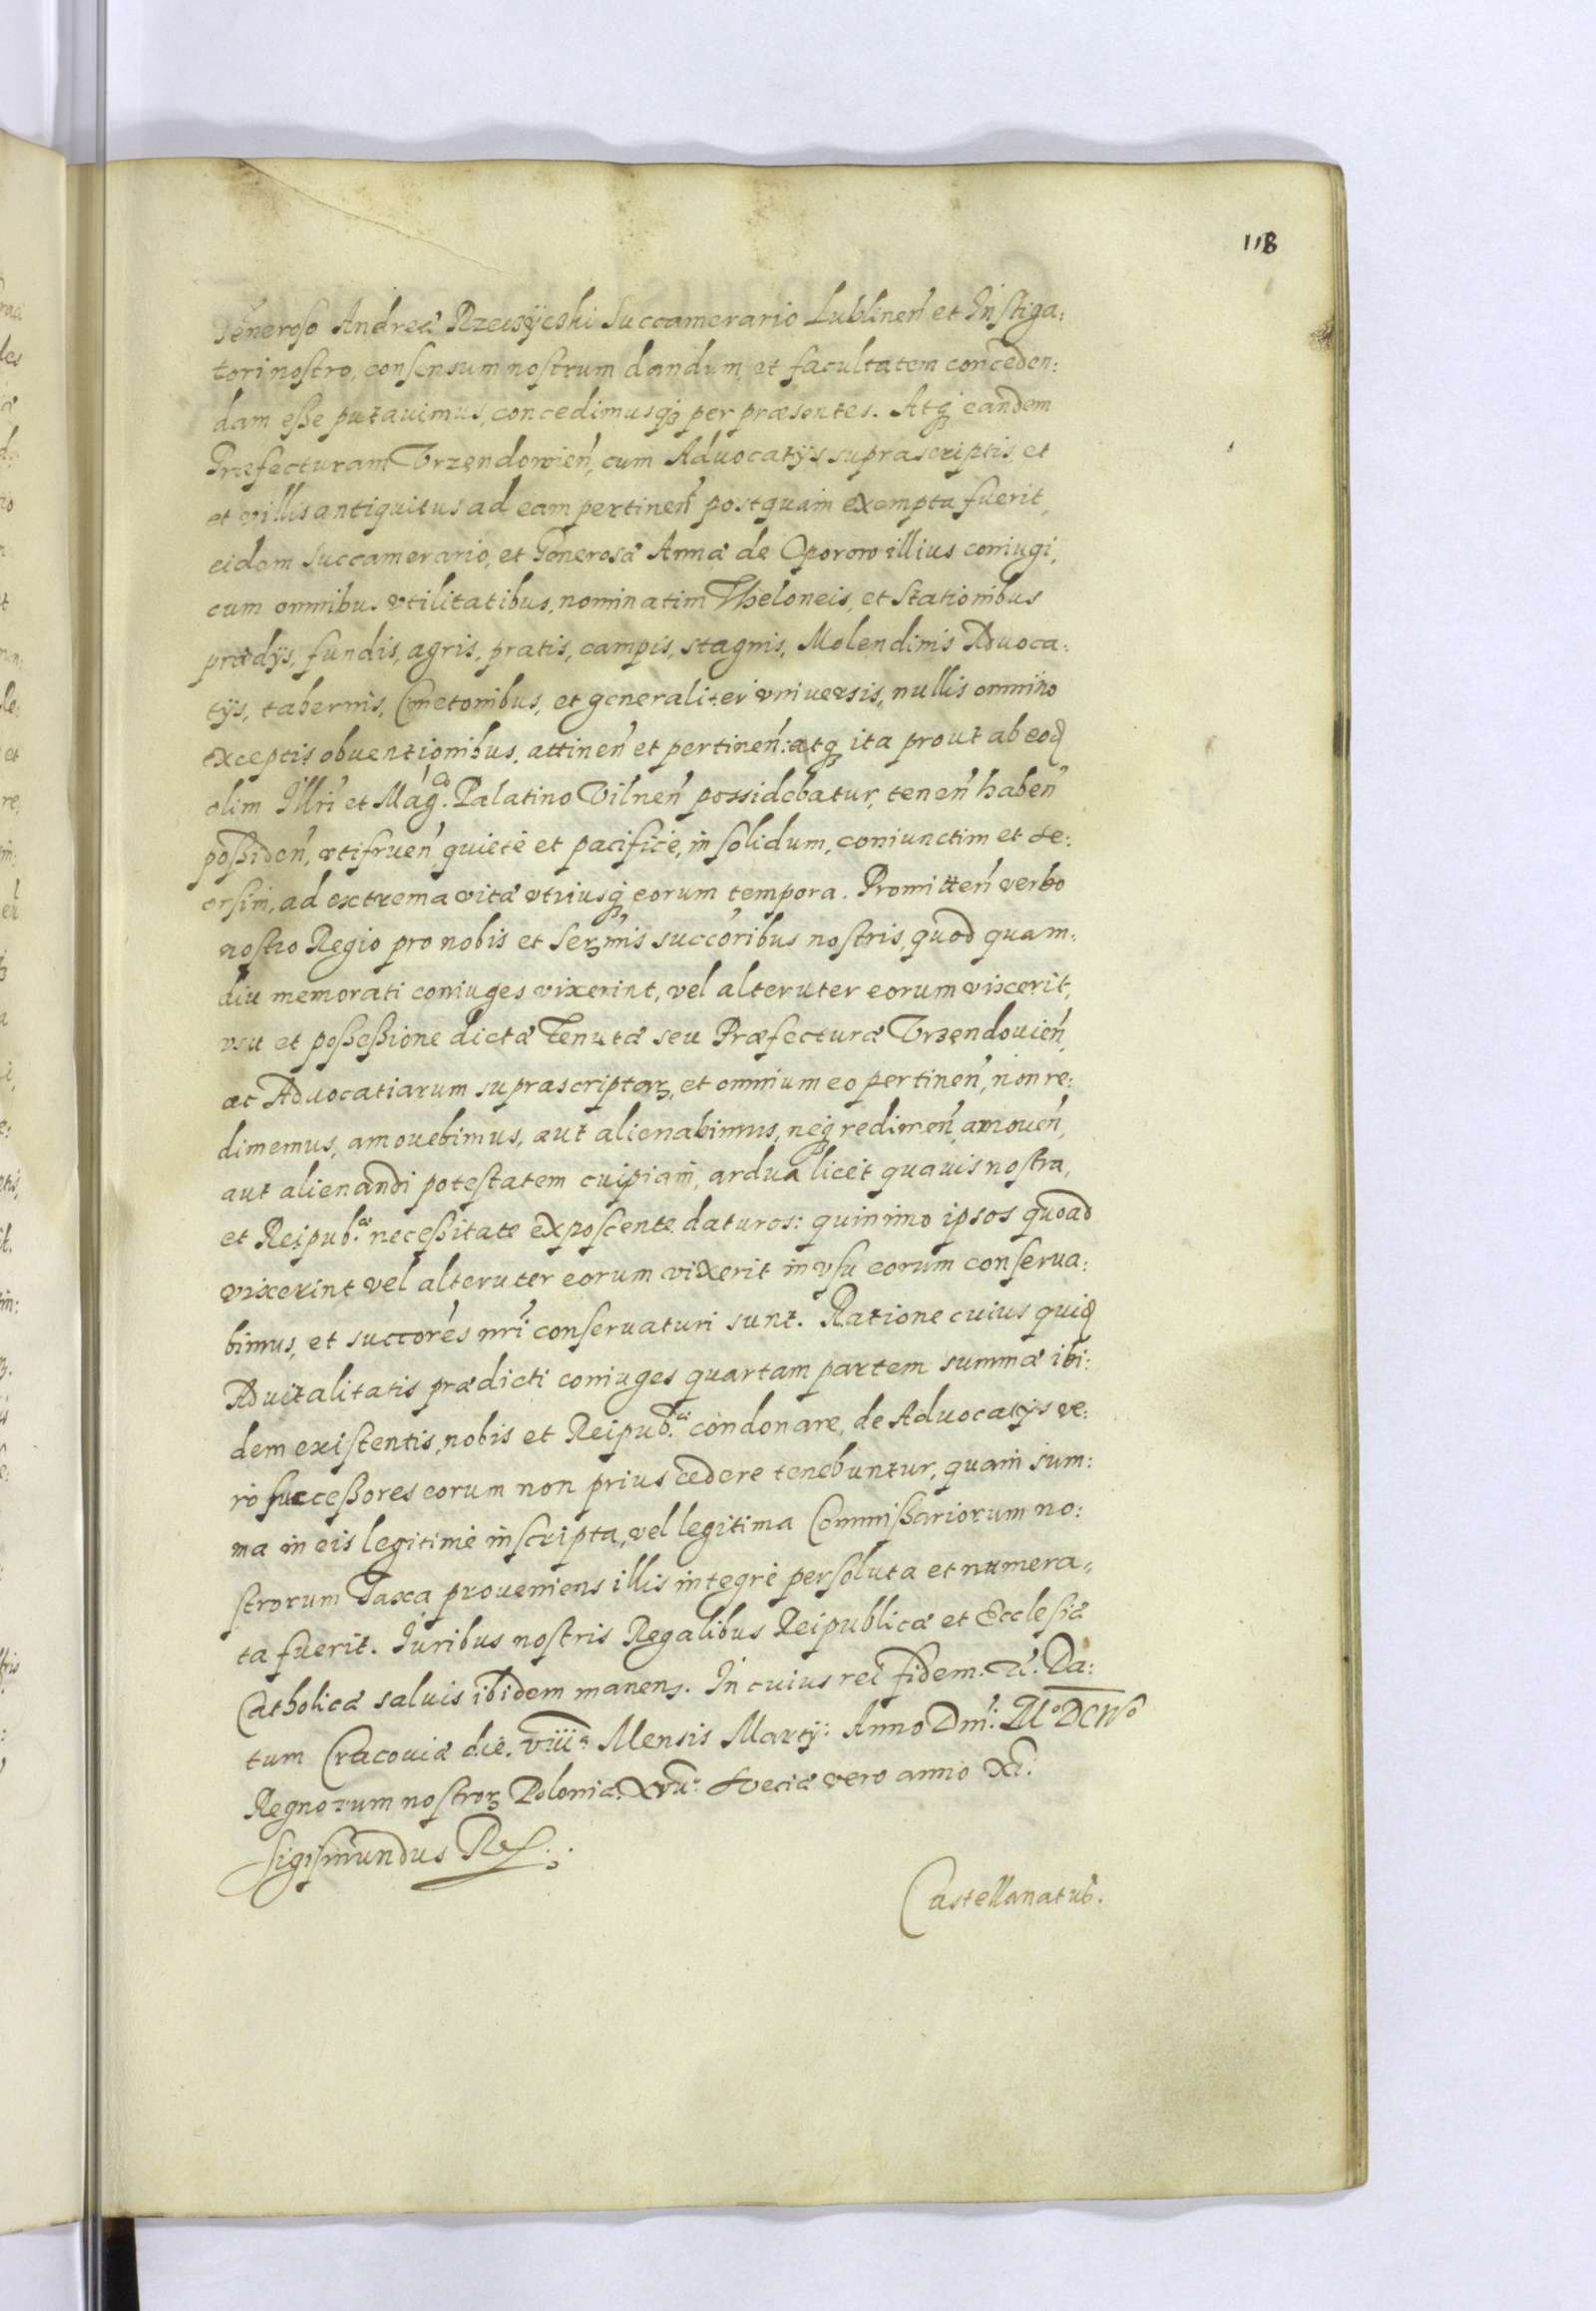 118
Generoso Andreæ Rzeczÿcski Succamerario Lublineń et Instiga:
tori nostro, consensum nostrum dandum, et facultatem conceden:
dam esse putauimus, concedimusq₃ per præsentes. Atq₃ eandem
Præfecturam Vrzendowień, cum Aduocatÿs suprascriptis et
et villis antiquitus ad eam pertineń postquàm exempta fuerit,
eidem Succamerario, et Generosæ Annæ de Oporow illius coniugi,
cum omnibus vtilitatibus, nominatim Theloneis, et Stationibus
prædÿs, fundis, agris, pratis, campis, stagnis, Molendinis Aduoca:
tÿs, tabernis, Cmetonibus, et generaliter vniuersis, nullis omnino
exceptis obuentionibus, attineń et pertineń: atq₃ ita prout ab eoḍ
olim Illrí et Mag.co Palatino Vilneń possidebatur, teneń habeń
possideń, vtifrueń quietè et pacificè, in solidum, coniunctim et se:
orsim, ad extrema vitæ vtriusq₃ eorum tempora. Promitteń verbo
nostro Regio pro nobis et Serm̃is succoribus nostris, quod quam:
diu memorati coniuges vixerint, vel alteruter eorum vixerit,
vsu et possessione dictæ Tenutæ seu Præfecturæ Vrzendouień,
ac Aduocatiarum suprascriptaꝝ, et omnium eo pertineń, non re:
dimemus, amouebimus, aut alienabimus, neq₃ redimeń, amoueń,
aut alienandi potestatem cuipiam, ardua licèt quauis nostra,
et Reipub.cæ necessitate exposcente daturos: quinimo ipsos quoad
vixerint vel alteruter eorum vixerit in vsu eorum conserua:
bimus, et succorés nrí conseruaturi sunt. Ratione cuius quiḍ
Aduitalitatis prædicti coniuges quartam partem summæ ibi:
dem existentis, nobis et Reipub.cæ condonare, de Aduocatÿs ve:
rò successores eorum non prius cedere tenebuntur, quàm sum:
ma in eis legitimè inscripta, vel legitima Commissariorum no:
strorum Taxa proueniens illis integrè persoluta et numera,,
ta fuerit. Iuribus nostris Regalibus Reipublicæ et Ecclesiæ
Catholicæ saluis ibidem manenꝫ. In cuius rei fidem. etc̃. Da:
tum Cracouiæ die. viiia Mensis Martÿ: Anno Dni: M.o DCIVo
Regnorum nostroꝝ Poloniæ. xvii.o Sveciæ vero anno xi.
Sigismundus Rex:
Castellanatus.